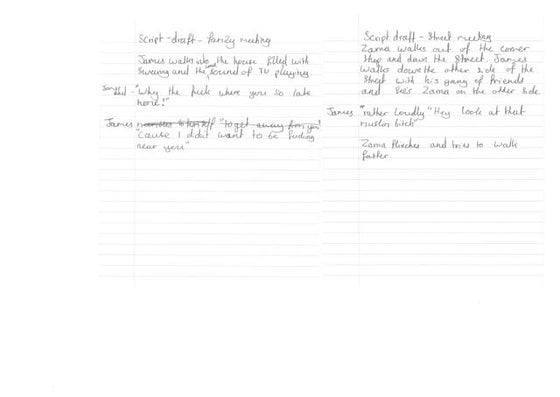 Script-draft - family meeting
James walks into the house filled with
Swearing and the sound of TV playing.
dad - "Why the fuck where you so late
home!"
James "to get away from you"
"Cause I didnt want to be fucking
near you"
Script draft - Street meeting
Zama walks out of the corner
Shop and down the Street. James
walks down the other side of the
Street with his gang of friends
and sees Zama on the other side.
James "rather loudly" "Hey look at that
muslim bitch"
Zama flinches and tries to walk
faster